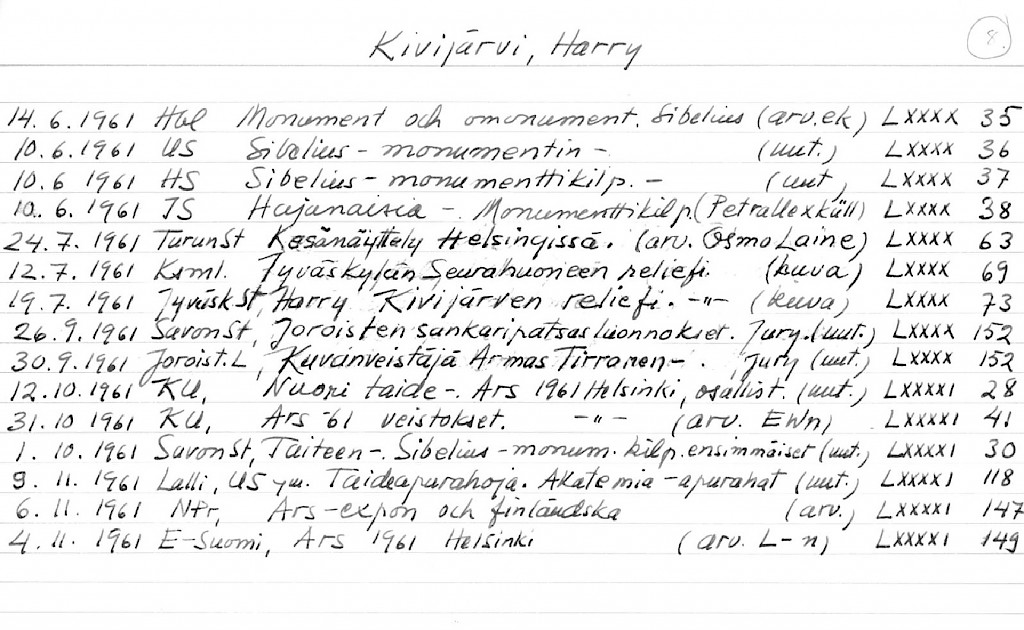 8.
Kivijärvi, Harry
14. 6. 1961 Hbl Monument och omonument. Sibelius (arv. ek) LXXXX 35
10. 6. 1961 US Sibelius - monumentin - (uut.) LXXXX 36
10. 6 1961 HS Sibelius - monumenttikilp. - (uut) LXXXX 37
10. 6. 1961 TS Hajanaisia - . Monumenttikilp. (Petra Uexküll) LXXXX 38
24. 7. 1961 TurunSt Kesänäyttely Helsingissä. (arv. Osmo Laine) LXXXX 63
12. 7. 1961 Ksml. Jyväskylän Seurahuoneen reliefi. (kuva) LXXXX 69
19. 7. 1961 JyväskSt, Harry Kivijärven reliefi. -"- (kuva) LXXXX 73
26. 9. 1961 SavonSt, Joroisten sankaripatsasluonnokset. Jury. (uut.) LXXXX 152
30. 9. 1961 Joroist. L, Kuvanveistäjä Armas Tirronen - . Jury (uut.) LXXXX 152
12. 10. 1961 KU, Nuori taide - . Ars 1961 Helsinki, osallist. (uut.) LXXXXI 28
31. 10 1961 KU, Ars -61 veistokset. -"- (arv. EWn) LXXXXI 41
1. 10. 1961 SavonSt, Taiteen - . Sibelius - monum. kilp. ensimmäiset (uut.) LXXXXI 30
9. 11. 1961 Lalli, US ym. Taideapurahoja. Akatemia - apurahat (uut.) LXXXXI 118
6. 11. 1961 NPr, Ars - expon och finländska (arv.) LXXXXI 147
4. 11. 1961 E-Suomi, Ars 1961 Helsinki (arv. L-n) LXXXXI 149